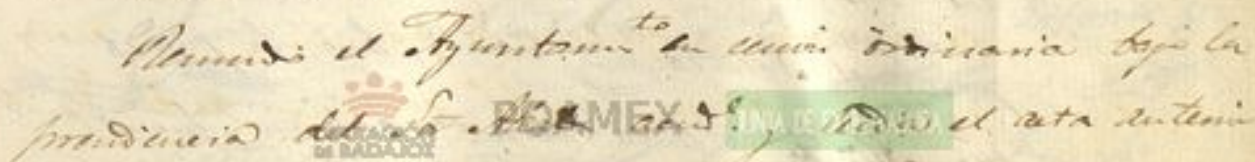 Reunido el Ayuntam.to en sesion ordinaria bajo la
presidencia del Sr. y leida el acta anterior